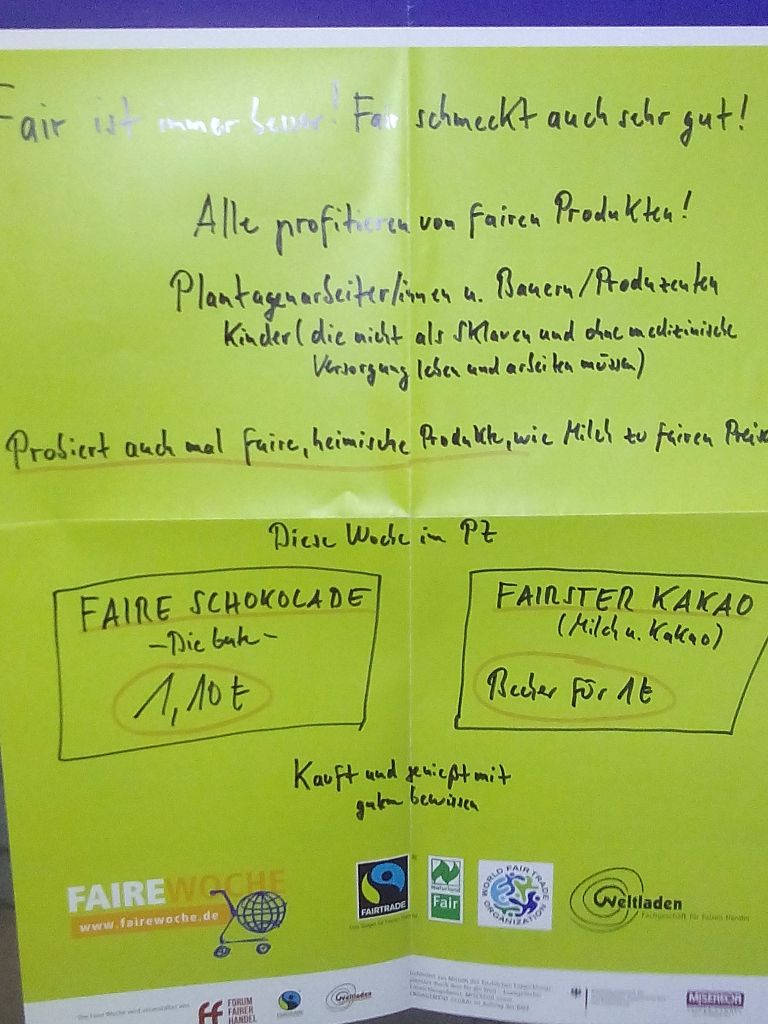 Fair ist immer besser! Fair schmeckt auch sehr gut!
Alle profitieren von fairen Produkten!
Plantagenarbeiter/innen u. Bauern/Produzenten
Kinder (die nicht als Sklaven und ohne medizinische
Versorgung leben und arbeiten müssen)
Probiert auch mal faire, heimische Produkte, wie Milch zu fairen Preise
Diese Woche im PZ
FAIRE SCHOKOLADE
- Die Gute -
1,10 €
FAIRSTER KAKAO
(Milch u. Kakao)
Becher für 1 €
Kauft und genießt mit
gutem Gewissen
FAIRE WOCHE
www.fairewoche.de
FAIRTRADE
Naturland
Fair
WORLD FAIR TRADE ORGANIZATION
Weltladen
Fachgeschäft für Fairen Handel
Die Faire Woche wird veranstaltet von:
FORUM
FAIRER
HANDEL
Weltladen
MISEREOR